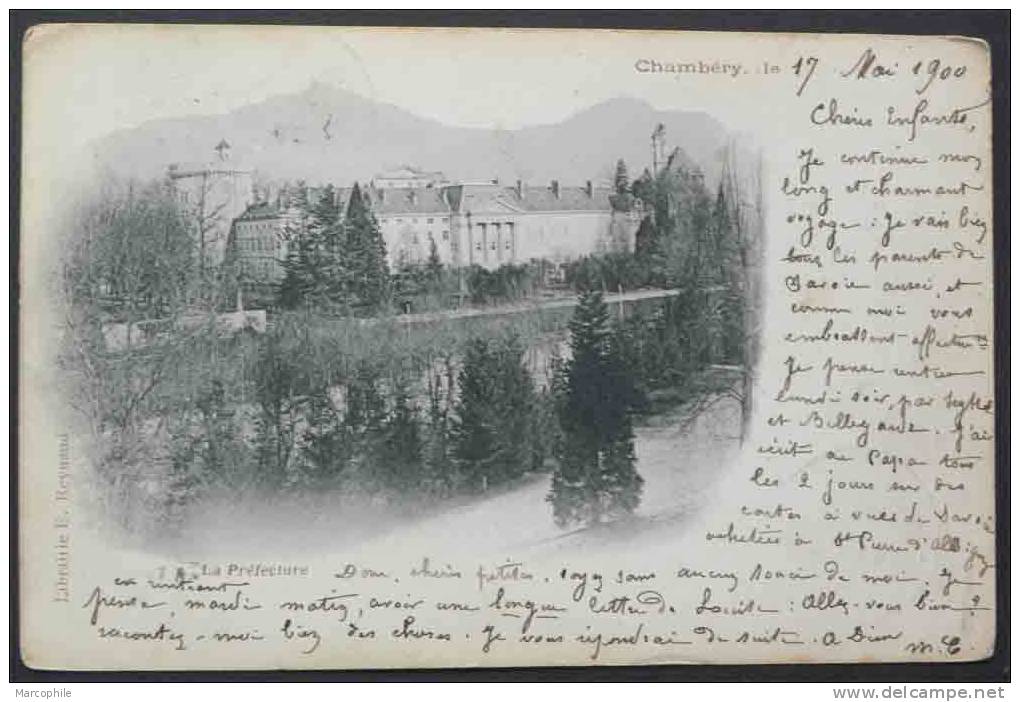 Chambéry, le 17 Mai 1900
Chères Enfants,
Je continue mon
long et charmant
voyage : Je vais bien
tous les parents de
Savoie aussi, et
comme moi vous
embrassent affectueusmt
Je pense rentrer
lundi soir, par Seyssel
et Bellegarde. J'ai
écrit au Papa tous
les 2 jours sur des
cartes à vues de Savoie
achetées à St Pierre d'Albigny
La Préfecture
Donc, chères petites, soyez sans aucun souci de moi. Je
pense, en rentrant
mardi matin, avoir une longue lettre de Louise : Allez-vous bien ?
racontez-moi bien des choses. Je vous répondrai de suite. A Dieu
M. C.
Librairie E. Reynaud
Marcophile
www.delcampe.net